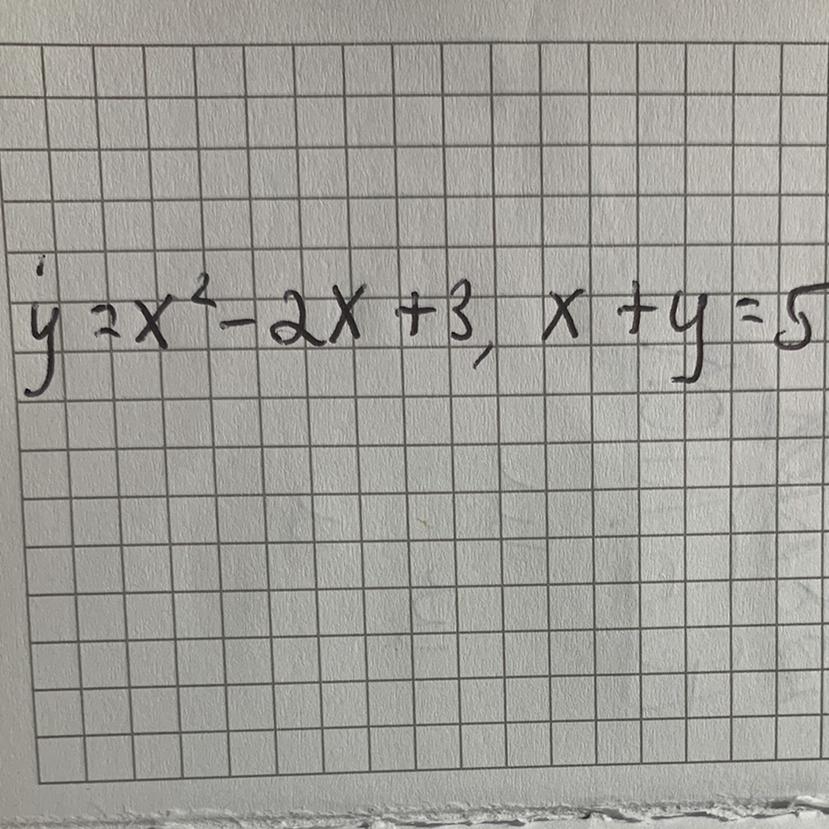 y = x² - 2x + 3, x + y = 5